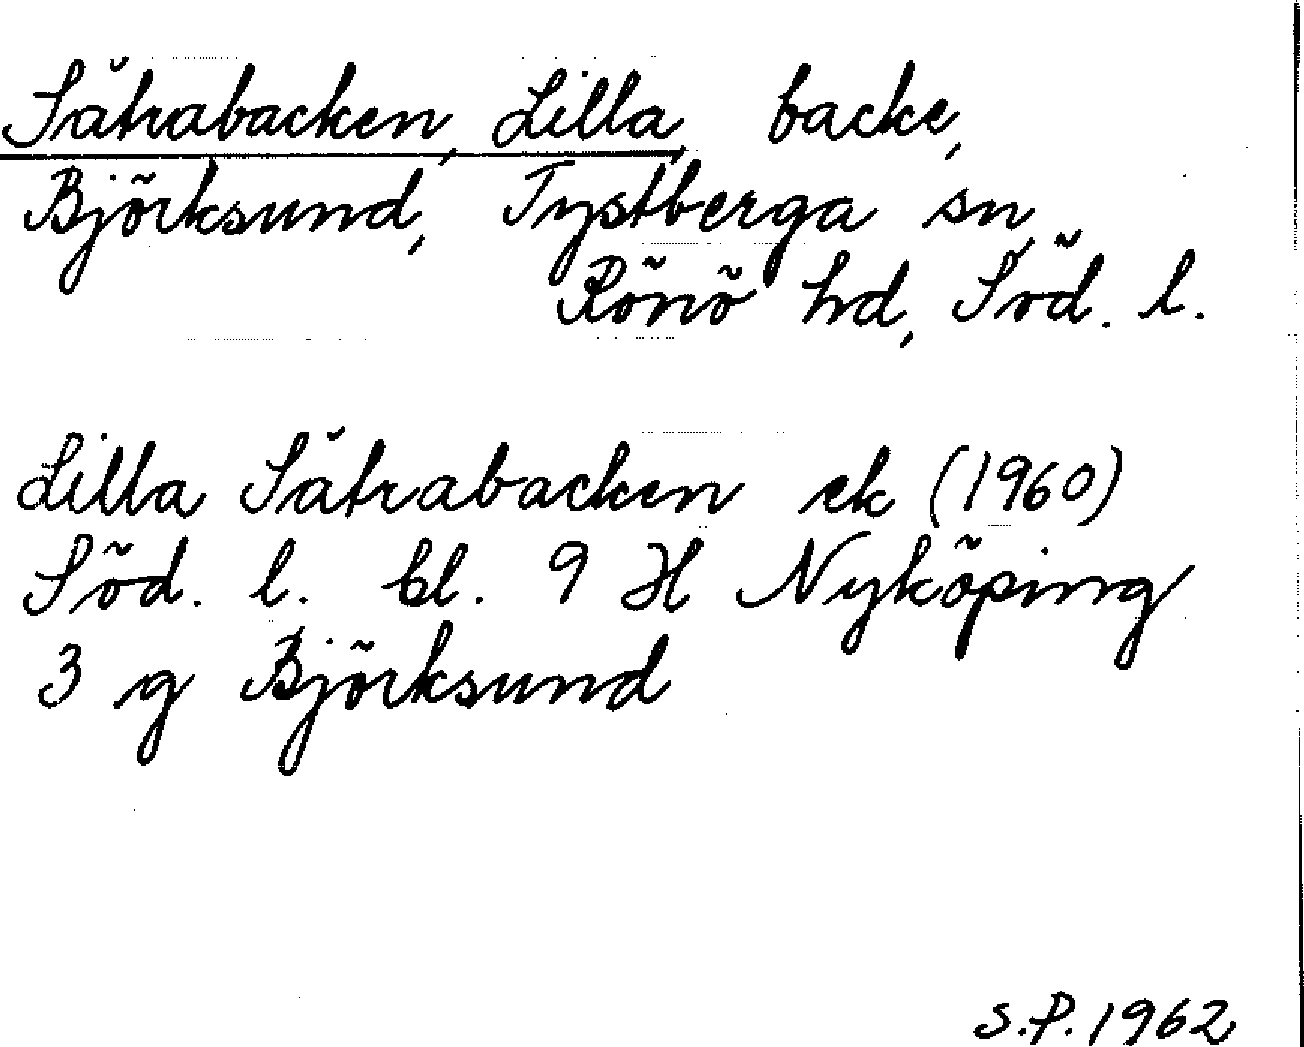 Sätrabacken, Lilla, backe,
Björksund, Tystberga sn,
Rönö hd, Söd. l.
Lilla Sätrabacken ek (1960)
Söd. l. bl. 9 H Nyköping
3 g Björksund
S.P. 1962